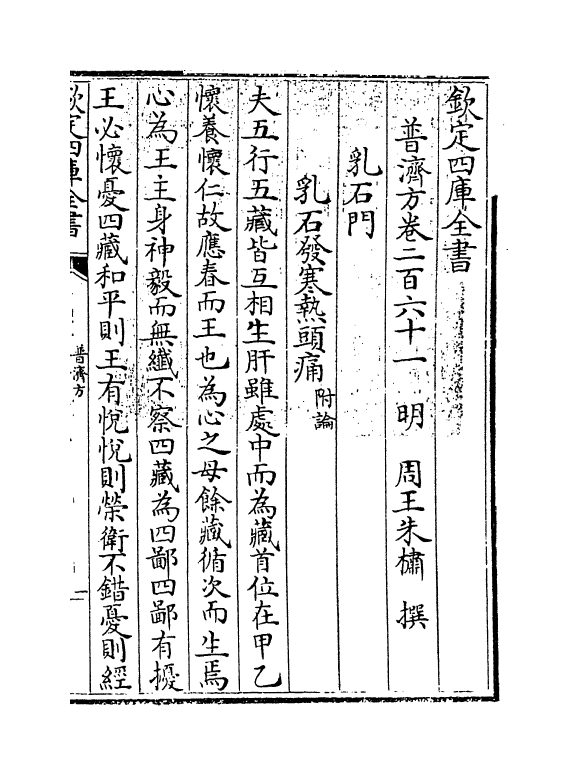 欽定四庫全書
普濟方卷二百六十一　明　周王朱橚　撰
乳石門
乳石發寒熱頭痛 附論
夫五行五藏皆互相生肝雖處中而為藏首位在甲乙
懷養懷仁故應春而王也為心之母餘藏循次而生焉
心為王主身神毅而無纖不察四藏為四鄙四鄙有擾
王必懷憂四藏和平則王有悅悅則榮衛不錯憂則經
欽定四庫全書
普濟方
一